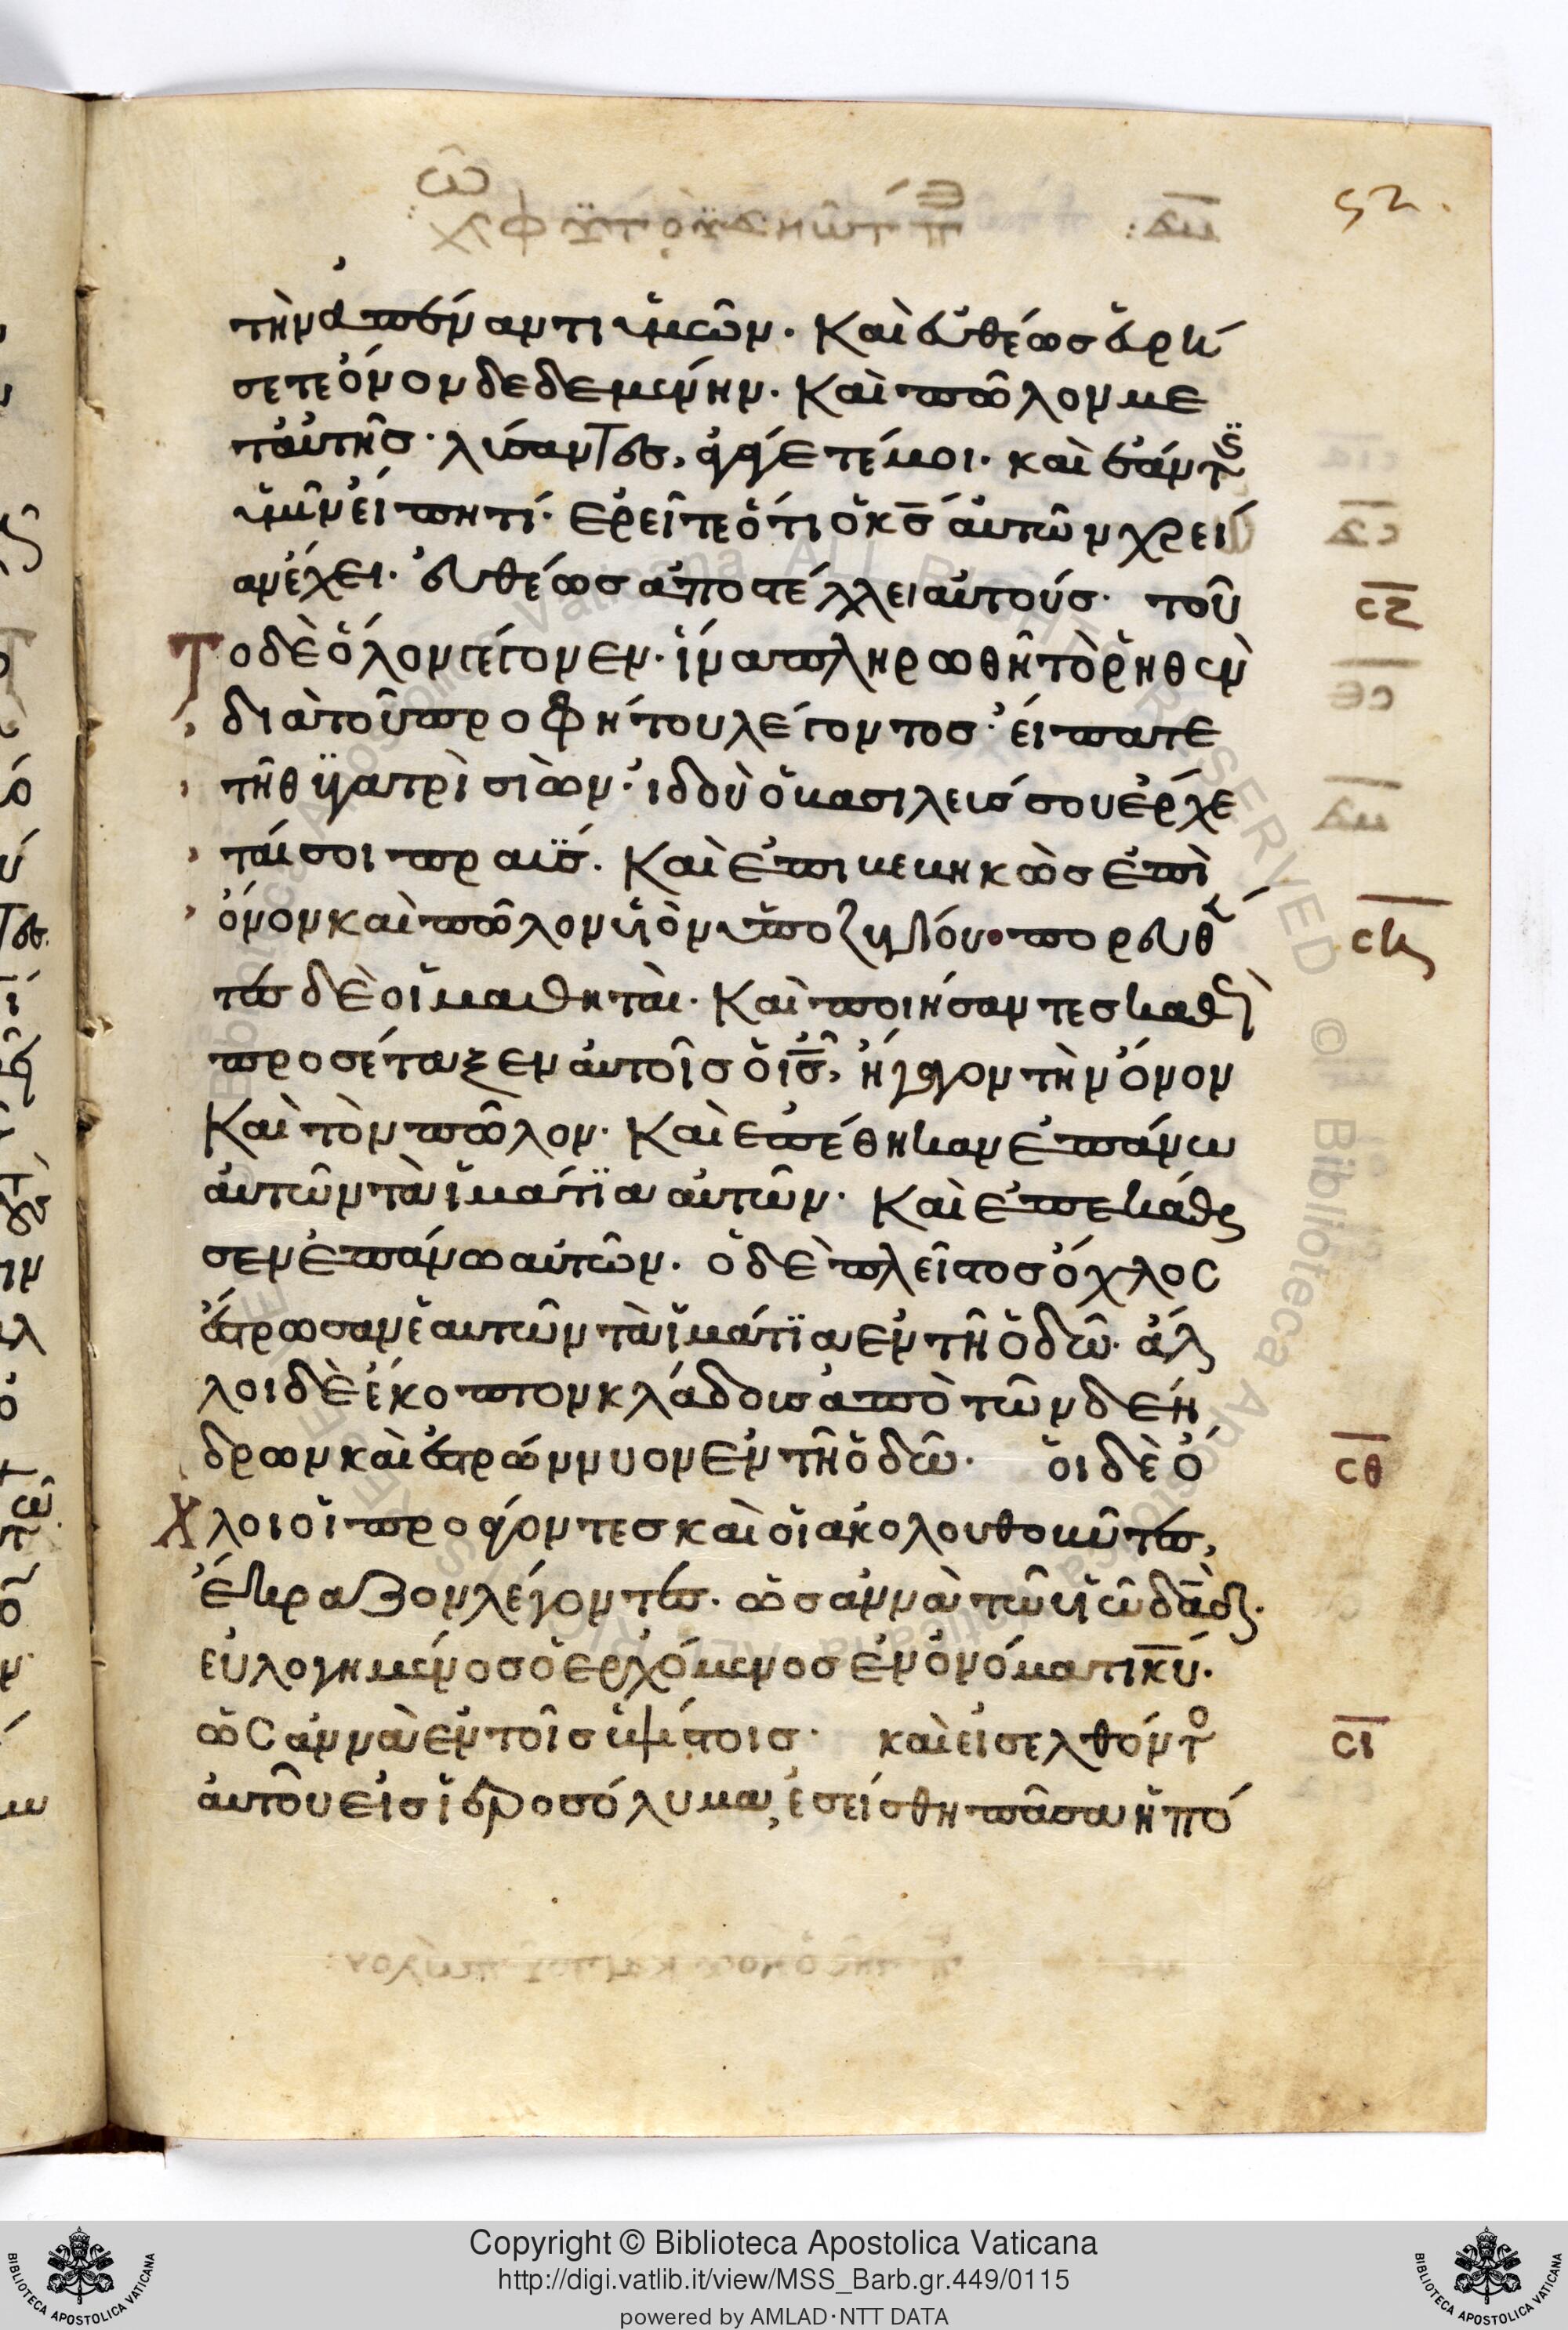 52.
τὴν ἀπέναντι ὑμῶν. Καὶ εὐθέως εὑρή
σετε ὄνον δεδεμένην. Καὶ πῶλον με
τ αὐτῆς. λύσαντες, ἀγάγετέ μοι. καὶ ἐάν τις
ὑμῖν εἴπη τί. ἐρεῖτε ὅτι ὁ κς αὐτῶν χρεί
αν ἔχει. εὐθέως ἀποστέλλει αὐτούς. τοῦ
Το δὲ ὅλον γέγονεν. ἵνα πληρωθῆ τὸ ῥηθὲν
διὰ τοῦ προφήτου λέγοντος. εἴπατε
τῆ θυγατρὶ σιὼν. ἰδοὺ ὁ βασιλεύς σου ἔρχε
ταί σοι πραΰς. Καὶ ἐπιβεβηκὼς ἐπὶ
ὄνον καὶ πῶλον υἱὸν ὑποζυγίου. πορευθέν
τες δὲ οἱ μαθηταὶ. Καὶ ποιήσαντες καθὼς
προσέταξεν αὐτοῖς ὁ ις, ἤγαγον τὴν ὄνον
Καὶ τὸν πῶλον. Καὶ ἐπέθηκαν ἐπάνω
αὐτῶν τὰ ἱμάτια αὐτῶν. Καὶ ἐπεκάθι
σεν ἐπάνω αὐτῶν. ὁ δὲ πλεῖστος ὄχλος
ἔστρωσαν ἑαυτῶν τὰ ἱμάτια ἐν τῆ ὁδῶ. ἄλ
λοι δὲ ἔκοπτον κλάδους ἀπὸ τῶν δέν
δρων καὶ ἐστρώννυον ἐν τῆ ὁδῶ. οἱ δὲ ὄ
Χλοι οἱ προάγοντες καὶ οἱ ἀκολουθοῦντες,
ἔκραζον λέγοντες. ὡσαννὰ τῶ υἱῶ δαδ.
εὐλογημένος ὁ ἐρχόμενος ἐν ὀνόματι κυ.
ὡσαννὰ ἐν τοῖς ὑψίστοις. καὶ εἰσελθόντος
αὐτοῦ εἰς ἱεροσόλυμα, ἐσείσθη πᾶσα ἡ πό
σζ
ση
σθ
σι
Copyright © Biblioteca Apostolica Vaticana
http://digi.vatlib.it/view/MSS_Barb.gr.449/0115
powered by AMLAD·NTT DATA